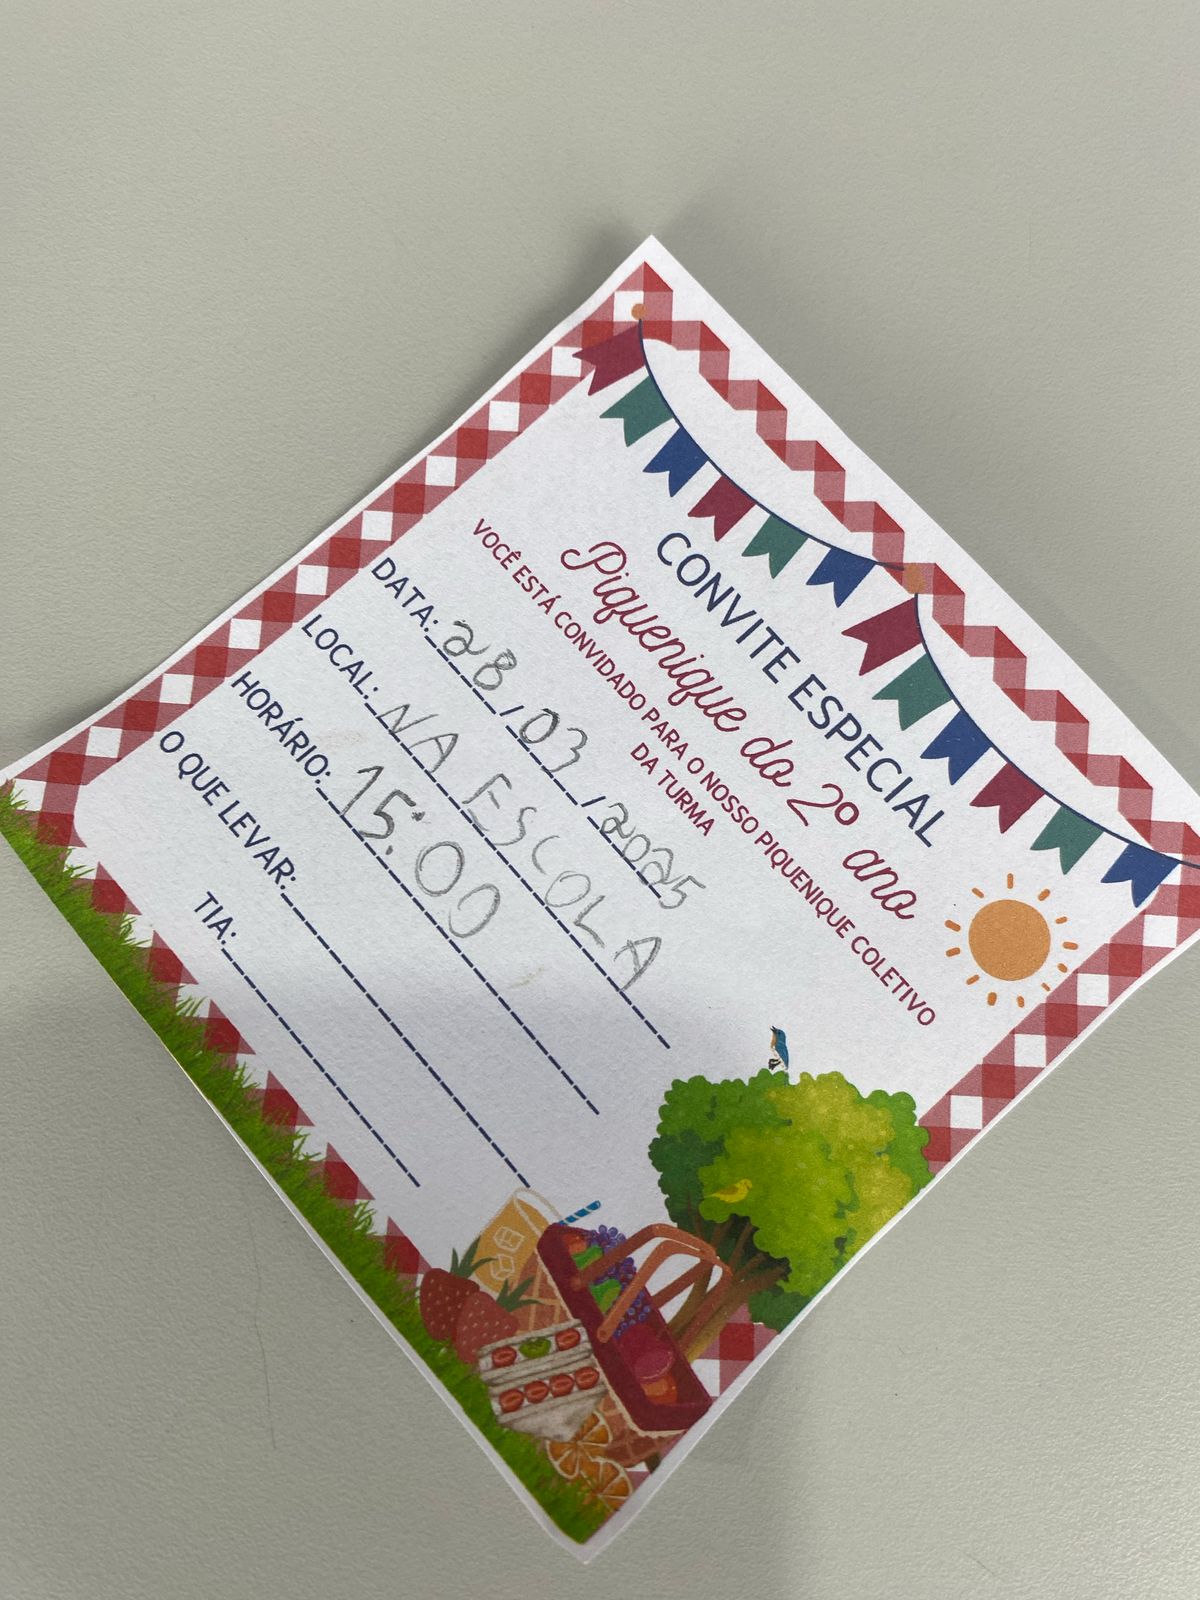 CONVITE ESPECIAL
Piquenique do 2º ano
VOCÊ ESTÁ CONVIDADO PARA O NOSSO PIQUENIQUE COLETIVO
DA TURMA
DATA: 28 / 03 / 2025
LOCAL: NA ESCOLA
HORÁRIO: 15:00
O QUE LEVAR:
TIA: